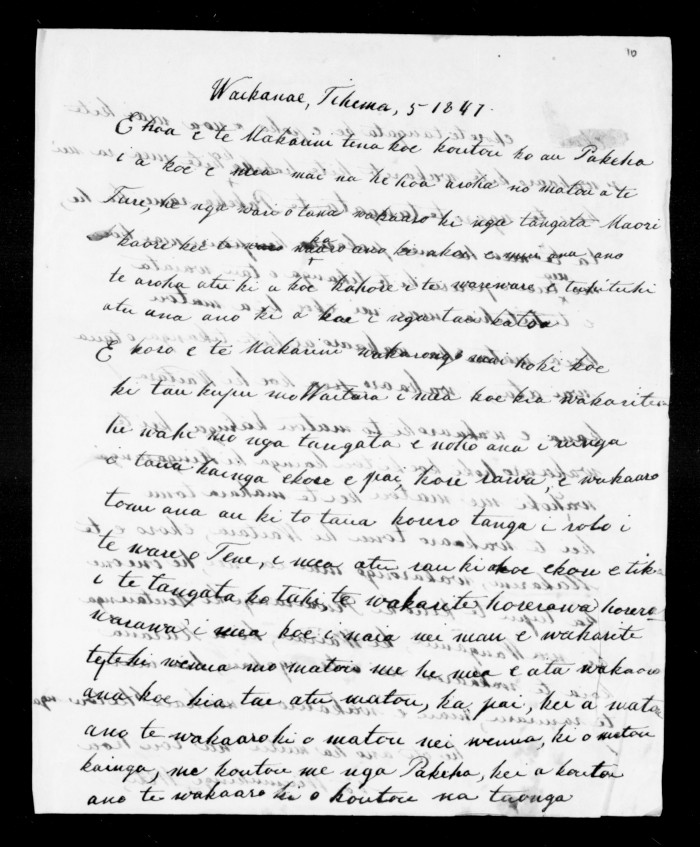 10
Waikanae, Tihema, 5 - 1847.
E hoa e te Makarini tena koe koutou ko au Pakeha
i a koe e mea mai na he hoa aroha no matou a te
Ture, he nga wari o tana wakaaro ki nga tangata Maori
kaore kei te ka waaro ano ki akoe e mea ana ano
te aroha atu ki a koe kahore i te wareware e tuhituhi
atu ana ano ki a koe i nga taa katoa
E koro e te Makarini wakarongo mai hoki koe
ki tau kupu mo Waitara i mea koe kia wakaritea
he wahi mo nga tangata e noho ana i runga
i tana kainga ekore e pai, kore rawa, e wakaaro
tonu ana au ki to taua korero tanga i roto i
te ware o Tene, i mea atu rau ki akoe ekore e tika
i te tangata ko tahi te wakarite horerawa horero
warawa i mea koe i naia nei mau e wakarite
tetehi wenua mo matou me he mea e ata wakaaro
ana koe kia tae atu matou, ka pai, kei a matou
ano te wakaaro ki o matou nei wenua, ki o matou
kainga, me koutou me nga Pakeha, kei a koutou
ano te wakaaro ki o koutou na taonga